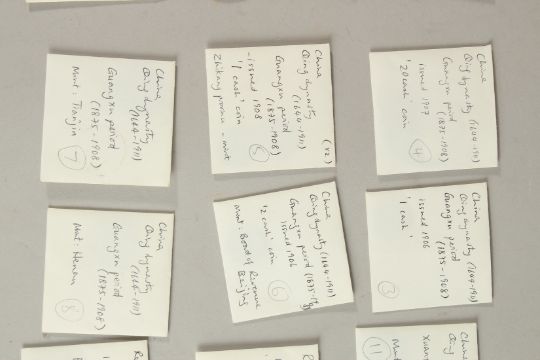 China
Qing dynasty
(1644-1911)
Guangxu period
(1875-1908)
Mint: Tianjin
7
China
(x2)
Qing dynasty
(1644-1911)
Guangxu period
(1875-1908)
- issued 1908
'1 cash' coin
mint
China
Qing dynasty (1644-1911)
Guangxu period
(1875-1908)
issued 1907
'20 cash' coin
4
China
Qing dynasty
(1644-1911)
Guangxu period
(1875-1908)
Mint: Henan
8
China
Qing dynasty (1644-1911)
Guangxu period (1875-1908)
issued 1906
'2 cash' coin
Mint: Board of Revenue
Beijing
6
China
Qing dynasty (1644-1911)
Guangxu period
(1875-1908)
issued 1906
'1 cash'
3
China
Qing
Mint
11